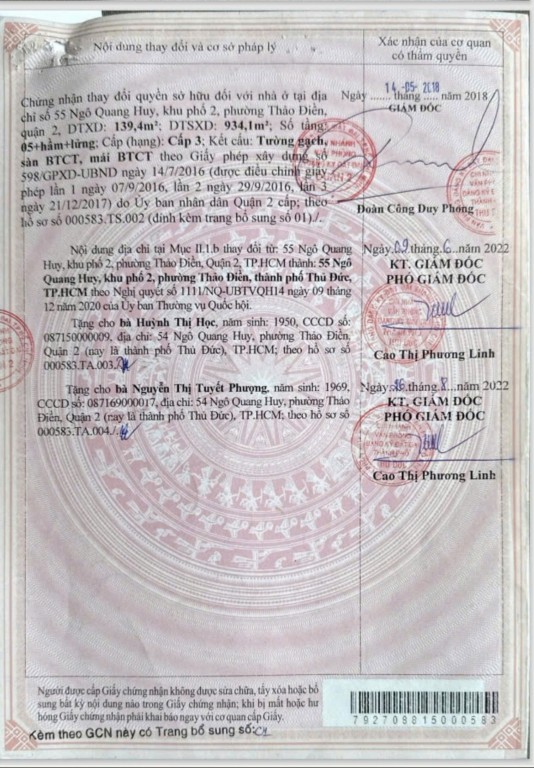 Nội dung thay đổi và cơ sở pháp lý
Xác nhận của cơ quan
có thẩm quyền
Chứng nhận thay đổi quyền sở hữu đối với nhà ở tại địa
chỉ số 55 Ngô Quang Huy, khu phố 2, phường Thảo Điền,
quận 2, DTXD: 139,4m²; DTSXD: 934,1m²; Số tầng:
05+hầm+lửng; Cấp (hạng): Cấp 3; Kết cấu: Tường gạch,
sàn BTCT, mái BTCT theo Giấy phép xây dựng số
598/GPXD-UBND ngày 14/7/2016 (được điều chỉnh giấy
phép lần 1 ngày 07/9/2016, lần 2 ngày 29/9/2016, lần 3
ngày 21/12/2017) do Ủy ban nhân dân Quận 2 cấp; theo
hồ sơ số 000583.TS.002 (đính kèm trang bổ sung số 01)./.
14 -05- 2018
Ngày ....... tháng ..... năm 2018
GIÁM ĐỐC
Đoàn Công Duy Phong
Nội dung địa chỉ tại Mục II.1.b thay đổi từ: 55 Ngô Quang
Huy, khu phố 2, phường Thảo Điền, Quận 2, TP.HCM thành: 55 Ngô
Quang Huy, khu phố 2, phường Thảo Điền, thành phố Thủ Đức,
TP.HCM theo Nghị quyết số 1111/NQ-UBTVQH14 ngày 09 tháng
12 năm 2020 của Ủy ban Thường vụ Quốc hội.
Tặng cho bà Huỳnh Thị Học, năm sinh: 1950, CCCD số:
087150000009, địa chỉ: 54 Ngô Quang Huy, phường Thảo Điền,
Quận 2 (nay là thành phố Thủ Đức), TP.HCM; theo hồ sơ số
000583.TA.003./.
Ngày 09 tháng 6 năm 2022
KT. GIÁM ĐỐC
PHÓ GIÁM ĐỐC
Cao Thị Phương Linh
Tặng cho bà Nguyễn Thị Tuyết Phượng, năm sinh: 1969,
CCCD số: 087169000017, địa chỉ: 54 Ngô Quang Huy, phường Thảo
Điền, Quận 2 (nay là thành phố Thủ Đức), TP.HCM; theo hồ sơ số
000583.TA.004./.
Ngày 26 tháng 8 năm 2022
KT. GIÁM ĐỐC
PHÓ GIÁM ĐỐC
Cao Thị Phương Linh
Người được cấp Giấy chứng nhận không được sửa chữa, tẩy xóa hoặc bổ
sung bất kỳ nội dung nào trong Giấy chứng nhận; khi bị mất hoặc hư
hỏng Giấy chứng nhận phải khai báo ngay với cơ quan cấp Giấy.
792709815000583
Kèm theo GCN này có Trang bổ sung số: 01